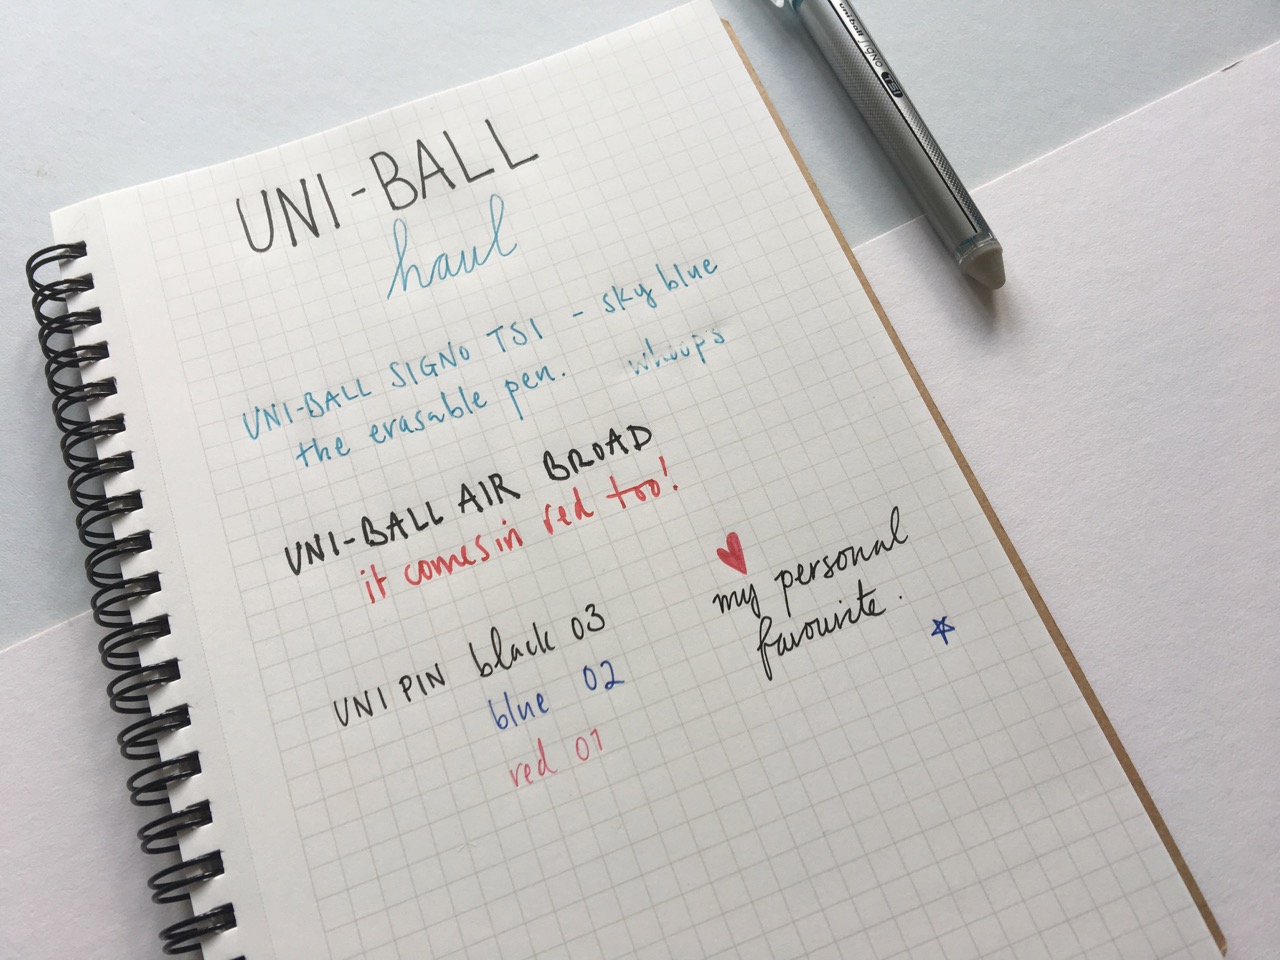 uniball SIGNO TSI
UNI-BALL
haul
UNI-BALL SIGNO TSI - sky blue
the erasable pen. whoops
UNI-BALL AIR BROAD
it comes in red too!
UNI PIN black 03
blue 02
red 01
my personal
favourite.